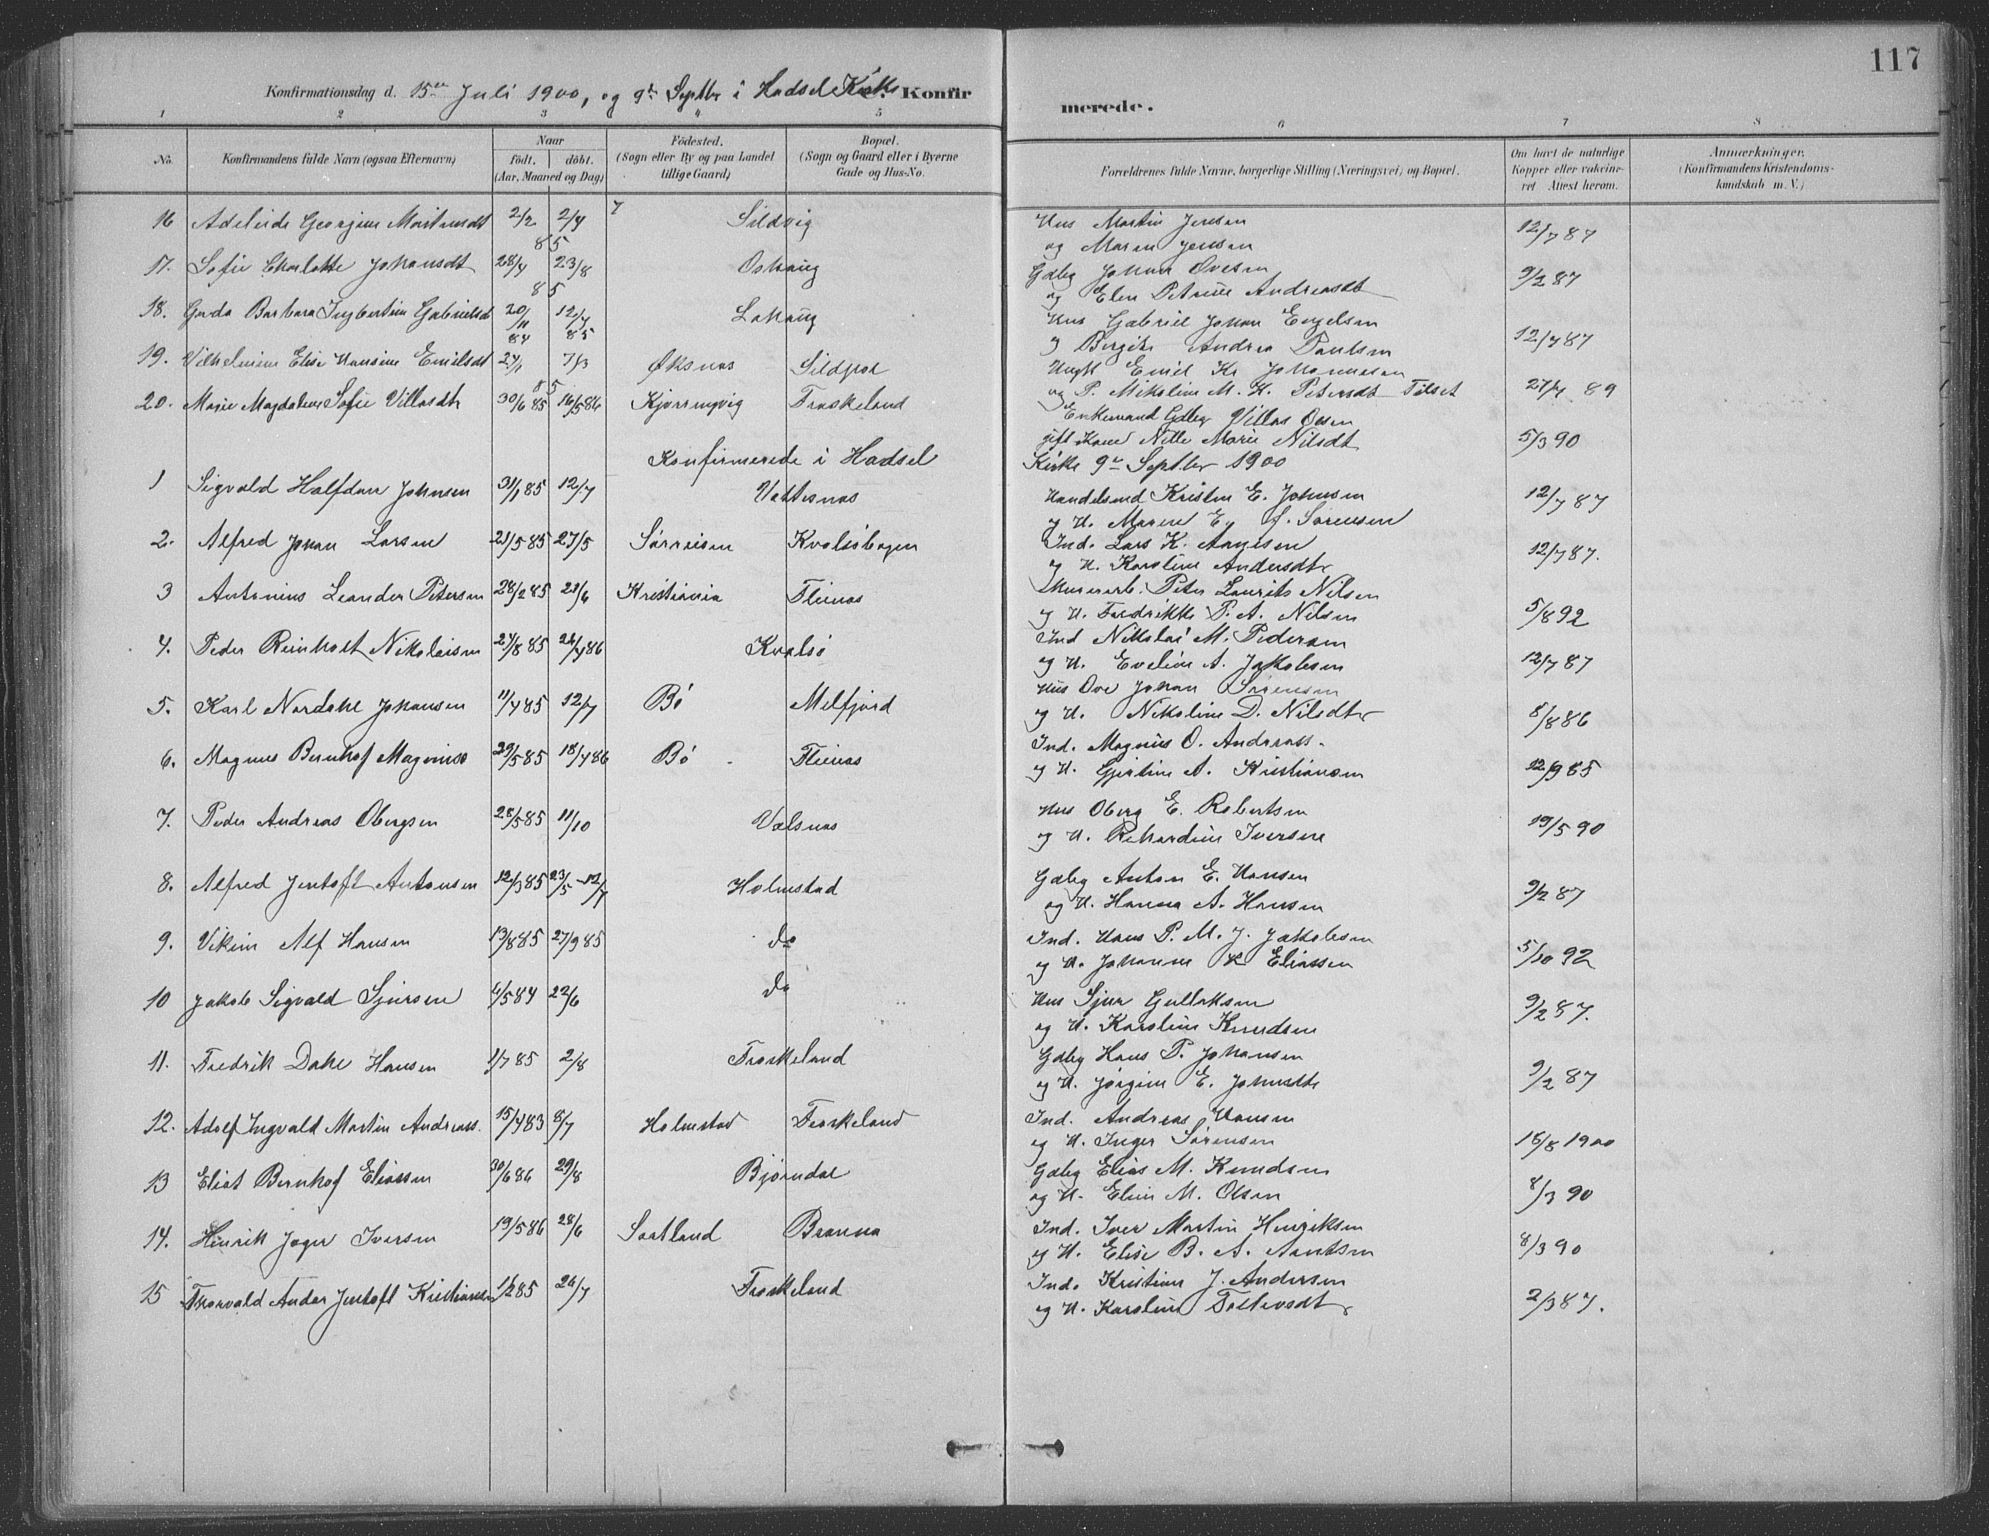 117
Konfirmationsdag d. 15de Juli 1900, og 9de Septbr i Hadsel Kirke. Konfirmerede.
1 2 3 4 5 6 7 8
No. Konfirmandens fulde Navn (ogsaa Efternavn) Naar födt. döbt. (Aar, Maaned og Dag) Födested. (Sogn eller By og paa Landet tillige Gaard) Bopæl. (Sogn og Gaard eller i Byerne Gade og Hus-No. Forældrenes fulde Navne, borgerlige Stilling (Næringsvei) og Bopæl. Om havt de naturlige Kopper eller vakcineret. Attest herom. Anmærkninger. (Konfirmandens Kristendomskundskab m. V.)
16 Adeleide Georgine Martinsdt 2/2 2/4 85 Sildvig Hus Martin Jensen 12/7 87
og Maren Jensen
17. Sofie Charlotte Johansdt 28/4 23/8 85 Oshaug Gdbg Johan Ovesen 9/2 87
og Elen Petrine Andreasdt
18. Gerda Barbara Ingbertine Gabrielsdt 20/11 84 12/7 85 Lahaug Hus Gabriel Johan Engelsen 12/7 87
og Bergite Andrea Paulsen
19. Vilhelmine Elise Hansine Emilsdt 27/1 7/3 85 Øksnes Sildpol Ungk Emil Kr Johannesen 27/7 89
og P. Mikoline M. K. Petersdt Tilset
20. Marie Magdalene Sofie Villasdt 30/6 85 16/5 86 Kjørringvig Fraskeland Enkemand Gdbg Villas Olsen 5/3 90
gift Kone Nille Marie Nilsdt
Konfirmerede i Hadsel Kirke 9de Septbr 1900
1 Sigvald Halfdan Johnsen 31/1 85 12/7 Vottesnas Handelsmd Kristen E. Johnsen 12/7 87
og H. Maren E. S. Sørensen
2. Alfred Johan Larsen 21/5 85 27/5 Sørreisen Kvalsøbogen Ind. Lars K. 12/7 87.
og H. Karoline Andersdtr
3 Antonius Leander Petersen 28/2 85 21/6 Kristiania Fleinas Peter Laurits Nilsen 5/8 92
og H. Fredrikke P. A. Nilsen
4. Peder Reinholt Nikolaisen 27/8 85 26/4 86 Kvalsø Ind Nikolai M. Pedersen 12/7 87
og H. Eveline A. Jakobsen
5. Karl Nordahl Johansen 11/4 85 12/7 Bø Melfjord Hus Ove Johan Sørensen 8/8 86
og H. Nikoline D. Nilsdtr
6. Magnus Bernhof Magnuss 29/5 85 18/4 86 Bø Fleinas Ind. Magnus O. Andreass. 12/9 85
og H. Gjertine A. Kristiansen
7. Peder Andreas Obergsen 28/5 85 11/10 Valsnas Hus Oberg E. Robertsen 19/5 90
og H. Rikardine Iversen
8. Alfred Jentoft Antonsen 12/3 85 23/5 - 12/7 Holmstad Gdbg Anton E. Hansen 9/2 87
og H. Hanna A. Hansen
9. Vikim Alf Hansen 13/8 85 27/9 85 do Ind. Hans P. M. J. Jakobsen 5/10 92
og H. Johanne K Eliassen
10 Jakob Sigvald Sjursen 4/5 84 22/6 do Hus Sjur Gullaksen 9/2 87.
og H. Karoline Knudsen
11. Fredrik Dahl Hansen 1/7 85 2/8 Fraskeland Gdbg Hans P. Johansen 9/2 87
og H. Jørgine E. Johnsdtr
12. Adolf Ingvald Martin Andreass. 15/4 83 8/7 Holmstad Fraskeland Ind. Andreas Hansen 16/8 1900
og H. Inger Sørensen
13 Eliot Bernhof Eliassen 30/6 86 29/8 Bjørndal Gdbg Elias M. Knudsen 8/3 90
og H. Eline M. Olsen
14. Henrik Jager Iversen 19/5 86 28/6 Sortland Branna Ind. Iver Martin Henriksen 8/3 90
og H. Elise B. A. Arntsen
15 Thorvald Andor Jentoft Kristiansen 1/2 85 26/7 Fraskeland Ind. Kristian J. Andersen 2/3 87.
og H. Karoline Tollevsdtr